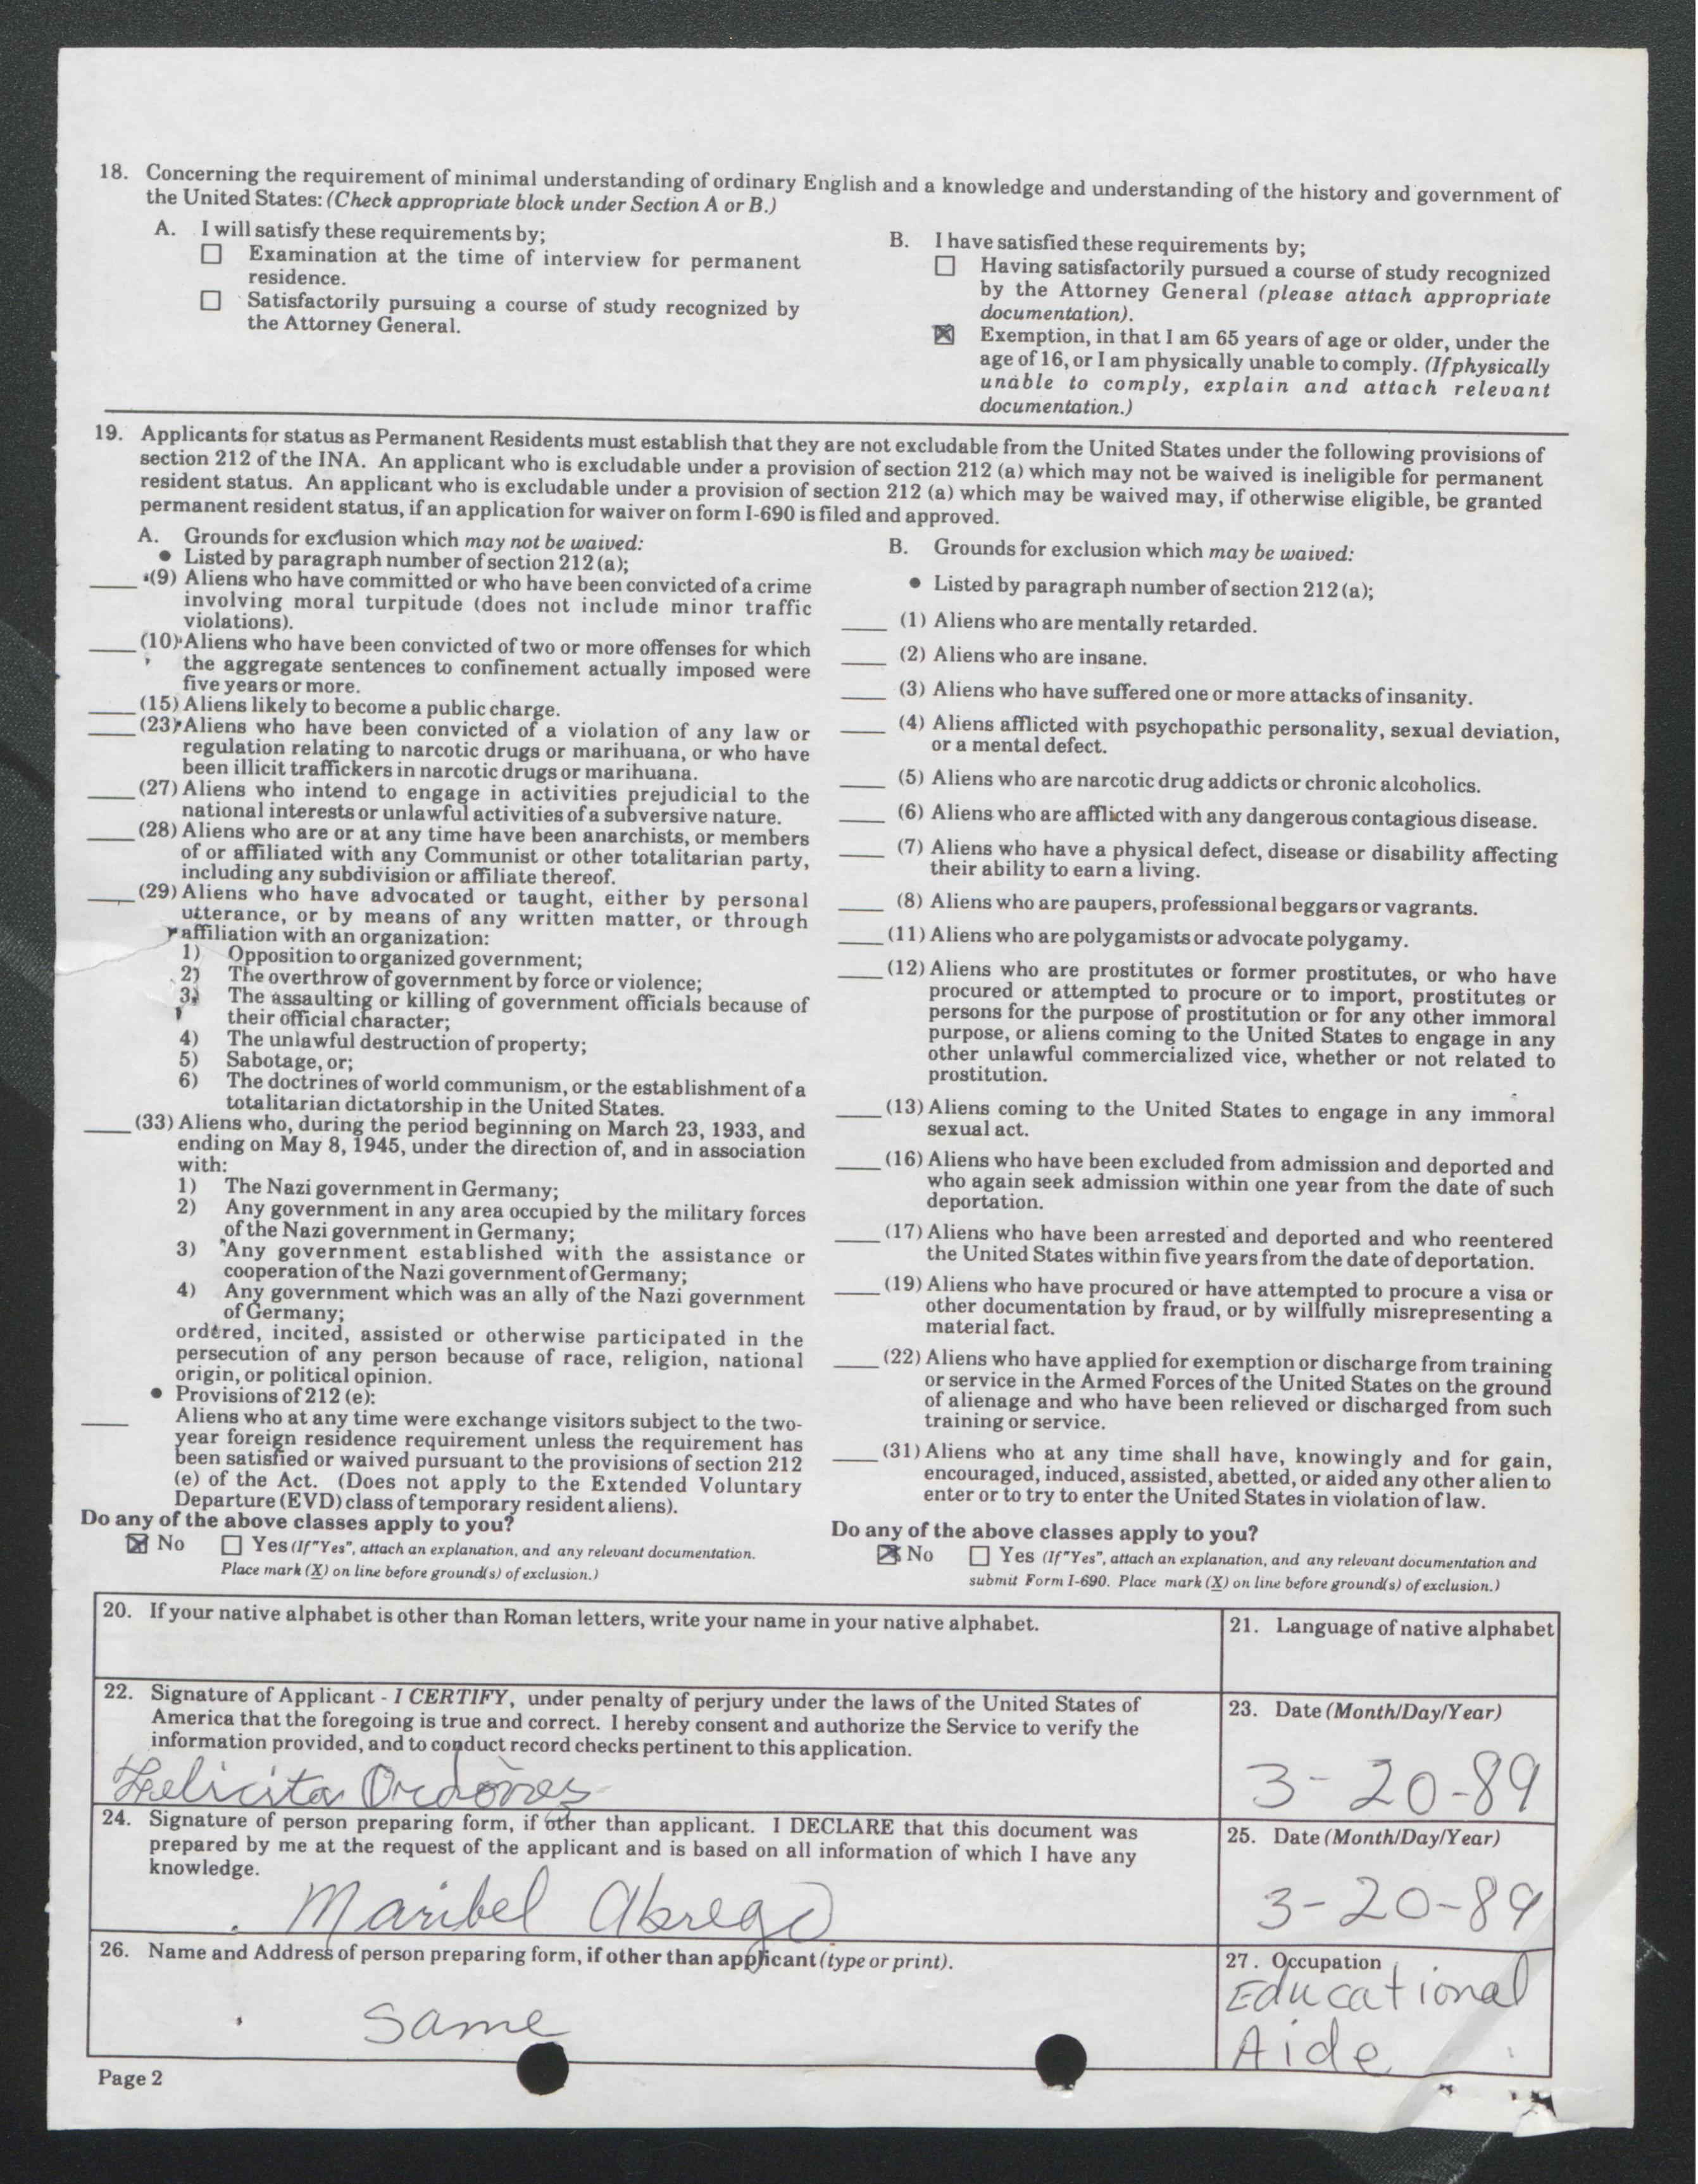 18. Concerning the requirement of minimal understanding of ordinary English and a knowledge and understanding of the history and government of
the United States: (Check appropriate block under Section A or B.)
A. I will satisfy these requirements by;
☐ Examination at the time of interview for permanent
residence.
☐ Satisfactorily pursuing a course of study recognized by
the Attorney General.
B. I have satisfied these requirements by;
☐ Having satisfactorily pursued a course of study recognized
by the Attorney General (please attach appropriate
documentation).
☒ Exemption, in that I am 65 years of age or older, under the
age of 16, or I am physically unable to comply. (If physically
unable to comply, explain and attach relevant
documentation.)
19. Applicants for status as Permanent Residents must establish that they are not excludable from the United States under the following provisions of
section 212 of the INA. An applicant who is excludable under a provision of section 212 (a) which may not be waived is ineligible for permanent
resident status. An applicant who is excludable under a provision of section 212 (a) which may be waived may, if otherwise eligible, be granted
permanent resident status, if an application for waiver on form I-690 is filed and approved.
A. Grounds for exclusion which may not be waived:
● Listed by paragraph number of section 212 (a);
____ (9) Aliens who have committed or who have been convicted of a crime
involving moral turpitude (does not include minor traffic
violations).
____ (10) Aliens who have been convicted of two or more offenses for which
the aggregate sentences to confinement actually imposed were
five years or more.
____ (15) Aliens likely to become a public charge.
____ (23) Aliens who have been convicted of a violation of any law or
regulation relating to narcotic drugs or marihuana, or who have
been illicit traffickers in narcotic drugs or marihuana.
____ (27) Aliens who intend to engage in activities prejudicial to the
national interests or unlawful activities of a subversive nature.
____ (28) Aliens who are or at any time have been anarchists, or members
of or affiliated with any Communist or other totalitarian party,
including any subdivision or affiliate thereof.
____ (29) Aliens who have advocated or taught, either by personal
utterance, or by means of any written matter, or through
affiliation with an organization:
1) Opposition to organized government;
2) The overthrow of government by force or violence;
3) The assaulting or killing of government officials because of
their official character;
4) The unlawful destruction of property;
5) Sabotage, or;
6) The doctrines of world communism, or the establishment of a
totalitarian dictatorship in the United States.
____ (33) Aliens who, during the period beginning on March 23, 1933, and
ending on May 8, 1945, under the direction of, and in association
with:
1) The Nazi government in Germany;
2) Any government in any area occupied by the military forces
of the Nazi government in Germany;
3) Any government established with the assistance or
cooperation of the Nazi government of Germany;
4) Any government which was an ally of the Nazi government
of Germany;
ordered, incited, assisted or otherwise participated in the
persecution of any person because of race, religion, national
origin, or political opinion.
● Provisions of 212 (e):
____ Aliens who at any time were exchange visitors subject to the two-
year foreign residence requirement unless the requirement has
been satisfied or waived pursuant to the provisions of section 212
(e) of the Act. (Does not apply to the Extended Voluntary
Departure (EVD) class of temporary resident aliens).
Do any of the above classes apply to you?
☒ No ☐ Yes (If "Yes", attach an explanation, and any relevant documentation.
Place mark (X) on line before ground(s) of exclusion.)
B. Grounds for exclusion which may be waived:
● Listed by paragraph number of section 212 (a);
____ (1) Aliens who are mentally retarded.
____ (2) Aliens who are insane.
____ (3) Aliens who have suffered one or more attacks of insanity.
____ (4) Aliens afflicted with psychopathic personality, sexual deviation,
or a mental defect.
____ (5) Aliens who are narcotic drug addicts or chronic alcoholics.
____ (6) Aliens who are afflicted with any dangerous contagious disease.
____ (7) Aliens who have a physical defect, disease or disability affecting
their ability to earn a living.
____ (8) Aliens who are paupers, professional beggars or vagrants.
____ (11) Aliens who are polygamists or advocate polygamy.
____ (12) Aliens who are prostitutes or former prostitutes, or who have
procured or attempted to procure or to import, prostitutes or
persons for the purpose of prostitution or for any other immoral
purpose, or aliens coming to the United States to engage in any
other unlawful commercialized vice, whether or not related to
prostitution.
____ (13) Aliens coming to the United States to engage in any immoral
sexual act.
____ (16) Aliens who have been excluded from admission and deported and
who again seek admission within one year from the date of such
deportation.
____ (17) Aliens who have been arrested and deported and who reentered
the United States within five years from the date of deportation.
____ (19) Aliens who have procured or have attempted to procure a visa or
other documentation by fraud, or by willfully misrepresenting a
material fact.
____ (22) Aliens who have applied for exemption or discharge from training
or service in the Armed Forces of the United States on the ground
of alienage and who have been relieved or discharged from such
training or service.
____ (31) Aliens who at any time shall have, knowingly and for gain,
encouraged, induced, assisted, abetted, or aided any other alien to
enter or to try to enter the United States in violation of law.
Do any of the above classes apply to you?
☒ No ☐ Yes (If "Yes", attach an explanation, and any relevant documentation and
submit Form I-690. Place mark (X) on line before ground(s) of exclusion.)
20. If your native alphabet is other than Roman letters, write your name in your native alphabet.
21. Language of native alphabet
22. Signature of Applicant - I CERTIFY, under penalty of perjury under the laws of the United States of
America that the foregoing is true and correct. I hereby consent and authorize the Service to verify the
information provided, and to conduct record checks pertinent to this application.
Felicita Ordónez
23. Date (Month/Day/Year)
3-20-89
24. Signature of person preparing form, if other than applicant. I DECLARE that this document was
prepared by me at the request of the applicant and is based on all information of which I have any
knowledge.
Maribel Abrego
25. Date (Month/Day/Year)
3-20-89
26. Name and Address of person preparing form, if other than applicant (type or print).
same
27. Occupation
Educational
Aide
Page 2